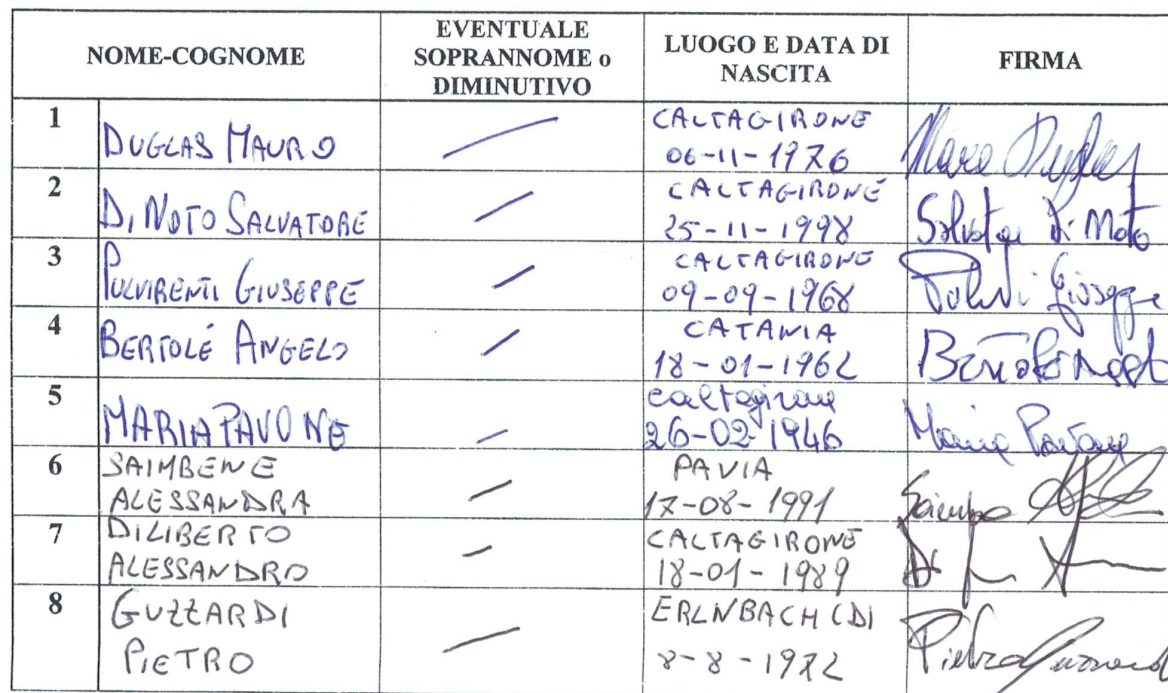 NOME-COGNOME
EVENTUALE
SOPRANNOME o
DIMINUTIVO
LUOGO E DATA DI
NASCITA
FIRMA
1
DUGLAS MAURO
CALTAGIRONE
06-11-1976
2
DI NOTO SALVATORE
CALTAGIRONE
25-11-1998
Di Noto
3
PULVIRENTI GIUSEPPE
CALTAGIRONE
09-09-1968
Giuseppe
4
BERTOLÉ ANGELO
CATANIA
18-01-1962
5
MARIA PAVONE
Caltagirone
26-02-1946
Maria Pavone
6
SAIMBENE
ALESSANDRA
PAVIA
17-08-1991
7
DILIBERTO
ALESSANDRO
CALTAGIRONE
18-01-1989
8
GUZZARDI
PIETRO
ERLNBACH (D)
8-8-1972
Pietro